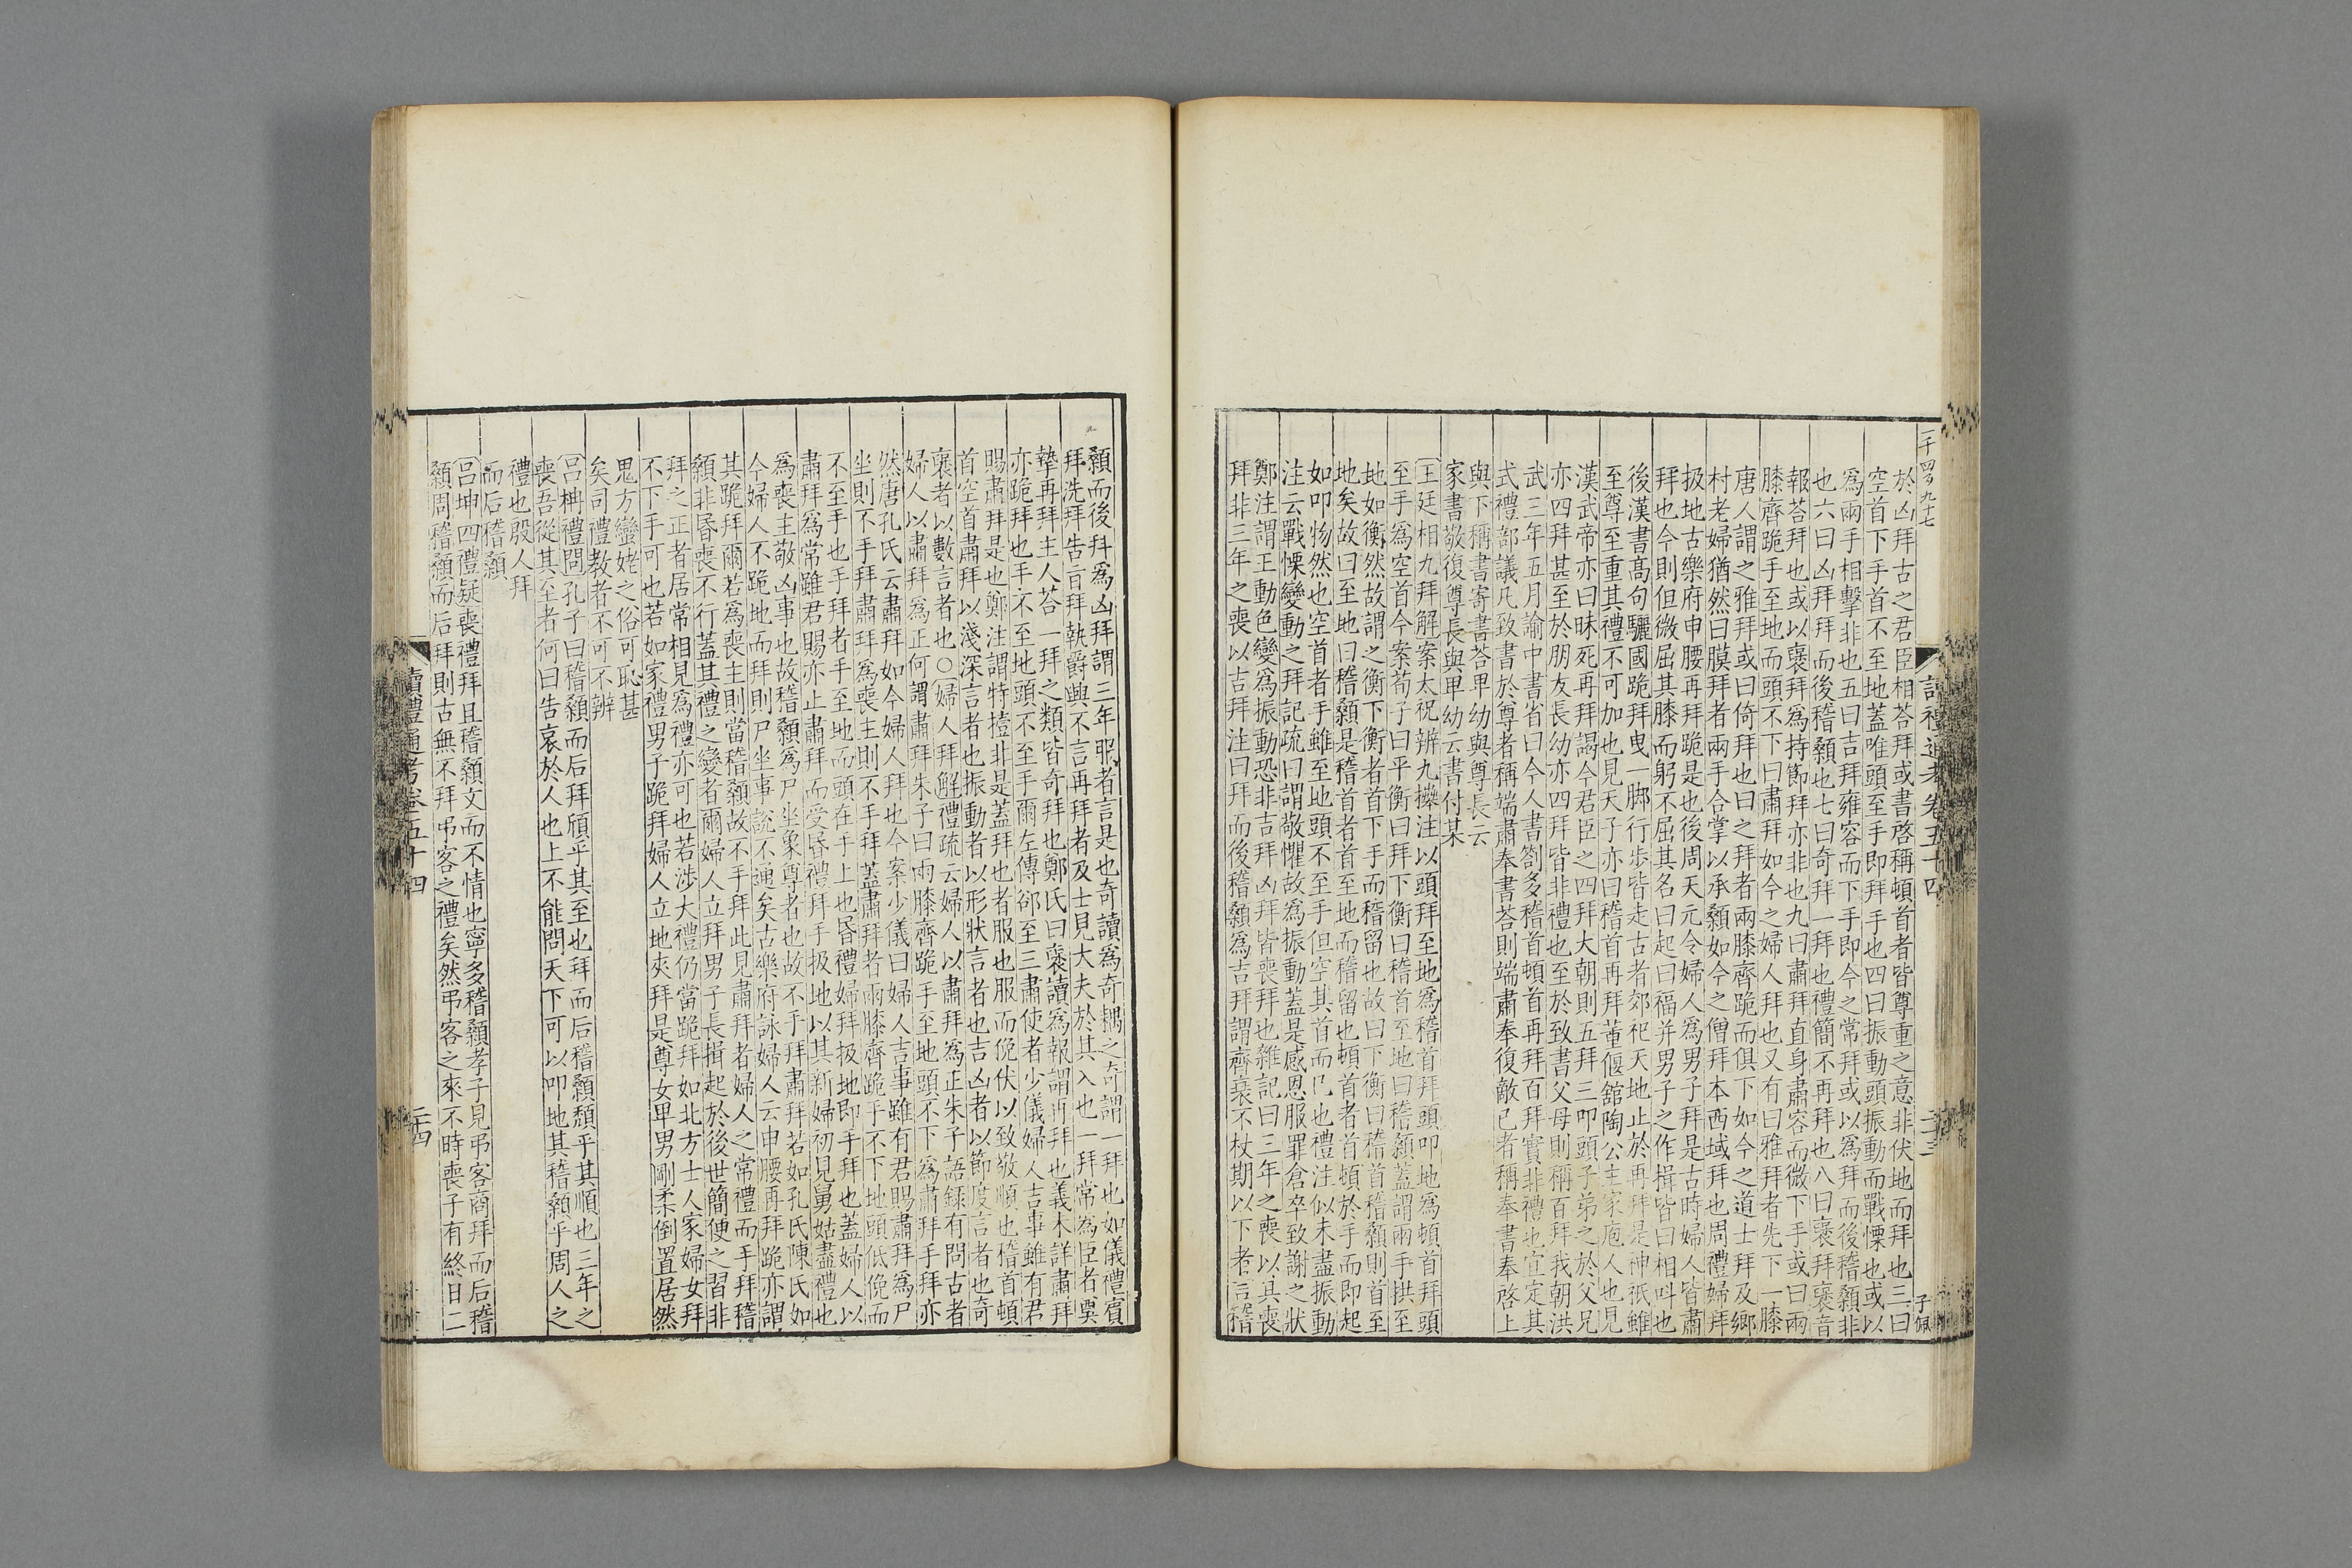 一千四百九十七
讀禮通考卷五十四
二十三
子佩
於凶拜古之君臣相荅拜或書啓稱頓首者皆尊重之意非伏地而拜也三曰
空首下手首不至地蓋唯頭至手即拜手也四曰振動頭振動而戰慄也或以
爲兩手相擊非也五曰吉拜雍容而下手即今之常拜或以爲拜而後稽顙非
也六曰凶拜拜而後稽顙也七曰奇拜一拜也禮簡不再拜也八曰褒拜褒音
報荅拜也或以褒拜爲持節拜亦非也九曰肅拜直身肅容而微下手或曰兩
膝齊跪手至地而頭不下曰肅拜如今之婦人拜也又有曰雅拜者先下一膝
唐人謂之雅拜或曰倚拜也曰之拜者兩膝齊跪而俱下如今之道士拜及鄉
村老婦猶然曰膜拜者兩手合掌以承顙如今之僧拜本西域拜也周禮婦拜
扱地古樂府申腰再拜跪是也後周天元令婦人爲男子拜是古時婦人皆肅
拜也今則但微屈其膝而躬不屈其名曰起曰福并男子之作揖皆曰相叫也
後漢書髙句驪國跪拜曳一脚行歩皆走古者郊祀天地止於再拜是神祇雖
至尊至重其禮不可加也見天子亦曰稽首再拜董偃舘陶公主家庖人也見
漢武帝亦曰昧死再拜謁今君臣之四拜大朝則五拜三叩頭子弟之於父兄
亦四拜甚至於朋友長幼亦四拜皆非禮也至於致書父母則稱百拜我朝洪
武三年五月諭中書省曰今人書劄多稽首頓首再拜百拜實非禮也宜定其
式禮部議凡致書於尊者稱端肅奉書荅則端肅奉復敵已者稱奉書奉啓上
與下稱書寄書荅卑幼與尊長云
家書敬復尊長與卑幼云書付某
王廷相九拜解案太祝辨九𢷎注以頭拜至地爲稽首拜頭叩地爲頓首拜頭
至手爲空首今案荀子曰平衡曰拜下衡曰稽首至地曰稽顙蓋謂兩手拱至
地如衡然故謂之衡下衡者首下手而稽留也故曰下衡曰稽首稽顙則首至
地矣故曰至地曰稽顙是稽首者首至地而稽留也頓首者首頓於手而即起
如叩物然也空首者手雖至地頭不至手但空其首而已也禮注似未盡振動
注云戰慄變動之拜記疏曰謂敬懼故爲振動蓋是感恩服罪倉卒致謝之狀
鄭注謂王動色變爲振動恐非吉拜凶拜皆喪拜也雜記曰三年之喪以其喪
拜非三年之喪以吉拜注曰拜而後稽顙爲吉拜謂齊衰不杖期以下者言稽
顙而後拜爲凶拜謂三年服者言是也奇讀爲奇耦之奇謂一拜也如儀禮賔
拜洗拜告旨拜執爵興不言再拜者及士見大夫於其入也一拜常為臣者奠
摯再拜主人荅一拜之類皆奇拜也鄭氏曰褒讀爲報謂再拜也義未詳肅拜
亦跪拜也手不至地頭不至手爾左傳郤至三肅使者少儀婦人吉事雖有君
賜肅拜是也鄭注謂特撎非是蓋拜也者服也服而俛伏以致敬順也稽首頓
首空首肅拜以淺深言者也振動者以形狀言者也吉凶者以節度言者也奇
褒者以數言者也○婦人拜解禮疏云婦人以肅拜爲正朱子語録有問古者
婦人以肅拜爲正何謂肅拜朱子曰兩膝齊跪手至地頭不下爲肅拜手拜亦
然唐孔氏云肅拜如今婦人拜也今案少儀曰婦人吉事雖有君賜肅拜爲尸
坐則不手拜肅拜爲喪主則不手拜蓋肅拜者兩膝齊跪手不下地頭低俛而
不至手也手拜者手至地而頭在手上也昏禮婦拜扱地即手拜也蓋婦人以
肅拜爲常雖君賜亦止肅拜而受昏禮拜手扱地以其新婦初見舅姑盡禮也
爲喪主敬凶事也故稽顙爲尸坐象尊者也故不手拜肅拜若如孔氏陳氏如
今婦人不跪地而拜則尸坐事説不通矣古樂府詠婦人云申腰再拜跪亦謂
其跪拜爾若爲喪主則當稽顙故不手拜此見肅拜者婦人之常禮而手拜稽
顙非昏喪不行蓋其禮之變者爾婦人立拜男子長揖起於後世簡便之習非
拜之正者居常相見爲禮亦可也若涉大禮仍當跪拜如北方士人家婦女拜
不下手可也若如家禮男子跪拜婦人立地夾拜是尊女卑男剛柔倒置居然
鬼方蠻姥之俗可恥甚
矣司禮教者不可不辨
吕柟禮問孔子曰稽顙而后拜頎乎其至也拜而后稽顙頽乎其順也三年之
喪吾從其至者何曰告哀於人也上不能問天下可以叩地其稽顙乎周人之
禮也殷人拜
而后稽顙
吕坤四禮疑喪禮拜且稽顙文而不情也寧多稽顙孝子見弔客商拜而后稽
顙周稽顙而后拜則古無不拜弔客之禮矣然弔客之來不時喪子有終日二
讀禮通考卷五十四
二十四